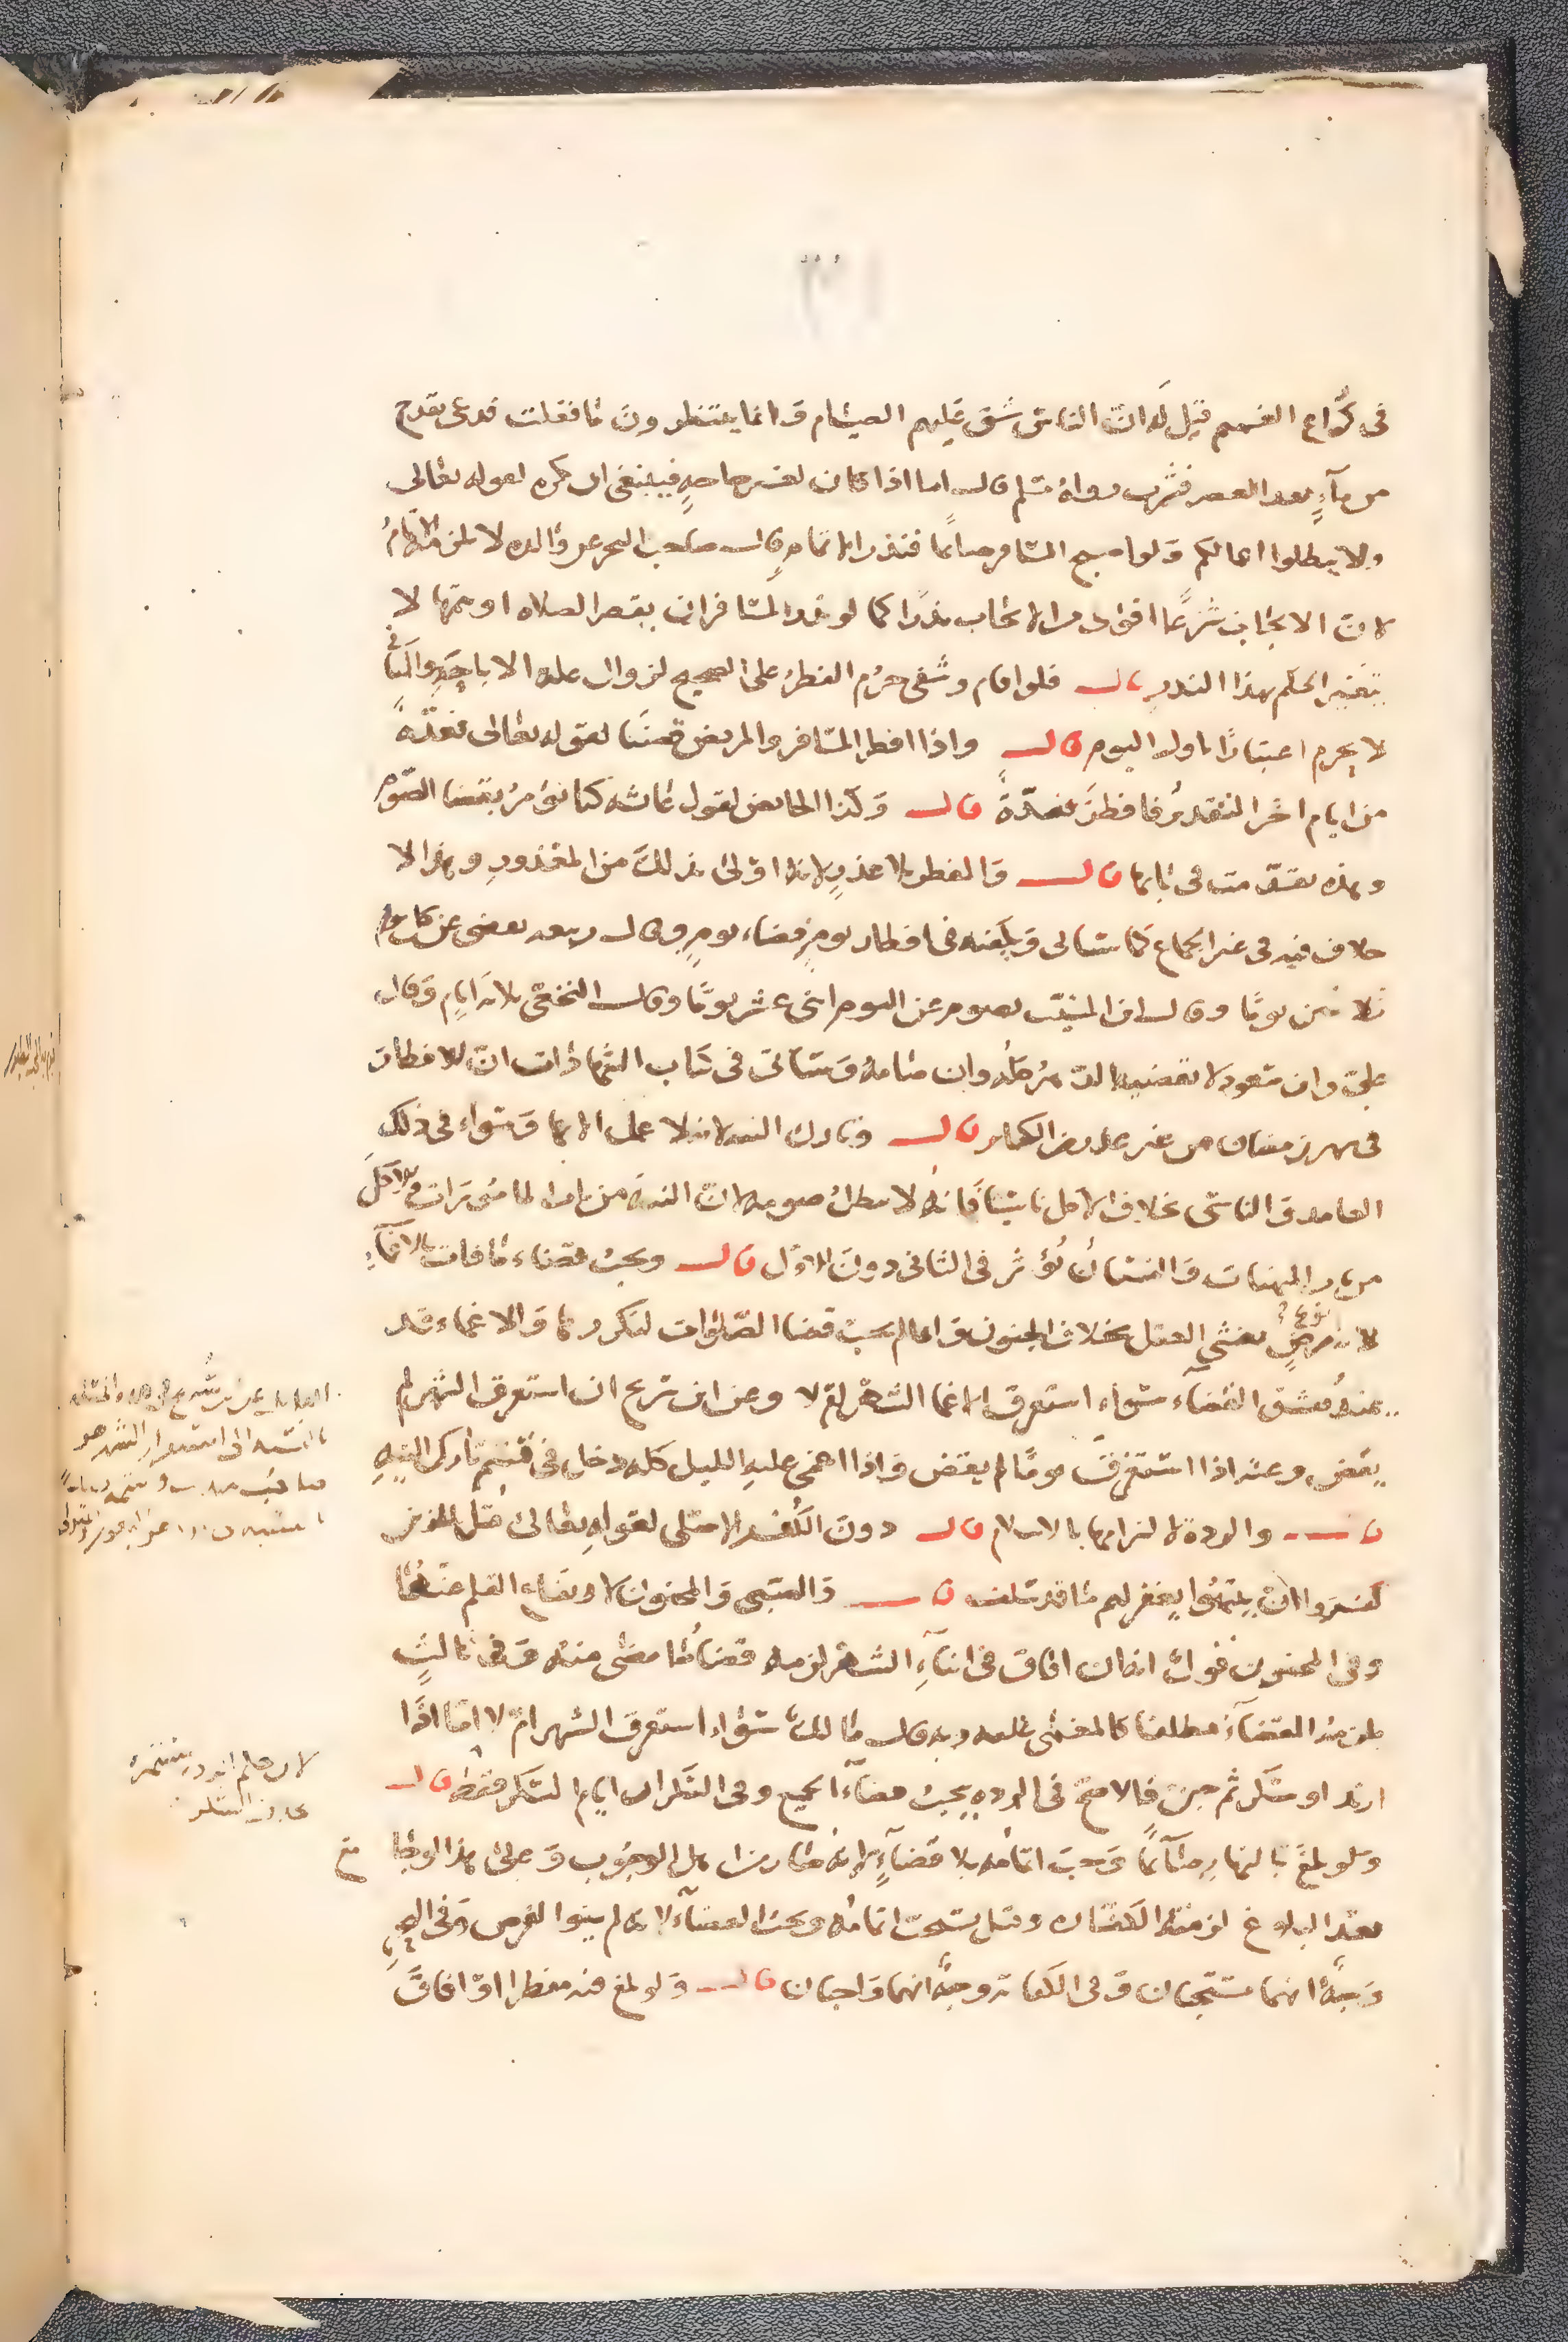 في كراع الغميم قيل له ان الناس شق عليهم الصيام وانما ينتظرون ما فعلت فدعى بقدح
من مآء بعد العصر فشرب رواه مسلم قال اما اذا كان لغير حاجة فينبغي ان يكره لقوله تعالى
ولا تبطلوا اعمالكم ولو اصبح المسافر صائما فنذر اتمامه قال صاحب البحر عن والده لا يلزمه الاتمام
لان الايجاب شرعا اقوى من الايجاب نذرا كما لو نذر المسافر ان يقصر الصلاه او يتمها لا
يتغير الحكم بهذا النذر قال فلو اقام وشفى حرم الفطر على الصحيح لزوال علة الاباحة والثاني
لا يحرم اعتبارا باول اليوم قال واذا افطر المسافر والمريض قضيا لقوله تعالى فعدة
من ايام اخر التقدير فافطر فعدة قال وكذا الحائض لقول عائشه كنا نؤمر بقضا الصوم
وهذه تقدمت في بابها قال والمفطر بلا عذر لانه اولى بذلك من المعذور وهذا لا
خلاف فيه في غير الجماع كما سيأتى ويكفيه في افطار يوم قضاء يوم وقال ربيعه يقضى عن كل يوم
يوما وقال ابن المسيب يصوم عن اليوم اثنى عشر يوما وقال النخعي ثلاثة ايام وقال
علي وابن مسعود لا يقضيه الدهر كله وان صامه وسيأتى في كتاب الشهادات ان الافطار
في شهر رمضان من غير عذر من الكبائر قال وتارك النيه لانه لا عمل الا بها وسواء في ذلك
العامد والناسى بخلاف الاكل ناسيا فانه لا يبطل صومه لان النيه من باب المامورات والاكل
من باب المنهيات والنسيان يؤثر في الثانى دون الاول قال ويجب قضاء ما فات بالاغمآء
لانه نوع مرض يغشى العقل بخلاف الجنون وانما لم يجب قضا الصلوات لتكررها والاغماء قد
عنه فيشق القضاء سوآء استغرق الاغما الشهر ام لا وعن ابن شريح ان استغرق الشهر لم
يقض وعنه اذا استغرق يوما لم يقض واذا اغمى عليه الليل كله دخل في قسم تارك النيه
قال والردة لالتزامها بالاسلام قال دون الكفر الاصلى لقوله تعالى قل للذين
كفروا ان ينتهوا يغفر لهم ما قد سلف قال والصبى والمجنون لارتفاع القلم عنهما
وفي المجنون قول انه ان افاق في اثنآء الشهر لزمه قضا ما مضى منه وفي ثالث
يلزمه القضآء مطلقا كالمغمى عليه وبه قال مالك سواء استغرق الشهر ام لا اما اذا
ارتد او سكر ثم جن فالاصح في الرده يجب قضآء الجميع وفي السكران ايام السكر فقط قال
ولو بلغ بالنهار صآئما وجب اتمامه بلا قضآء لانه صار من اهل الوجوب وعلى هذا لو جامع
بعد البلوغ لزمته الكفاره وقيل يستحب اتمامه ويجب القضآء لانه لم ينو الفرض وفي
وجه انهما مستحبان وفي الكفاية وجه انهما واجبان قال ولو بلغ فيه مفطرا او افاق
لان حكم الردة